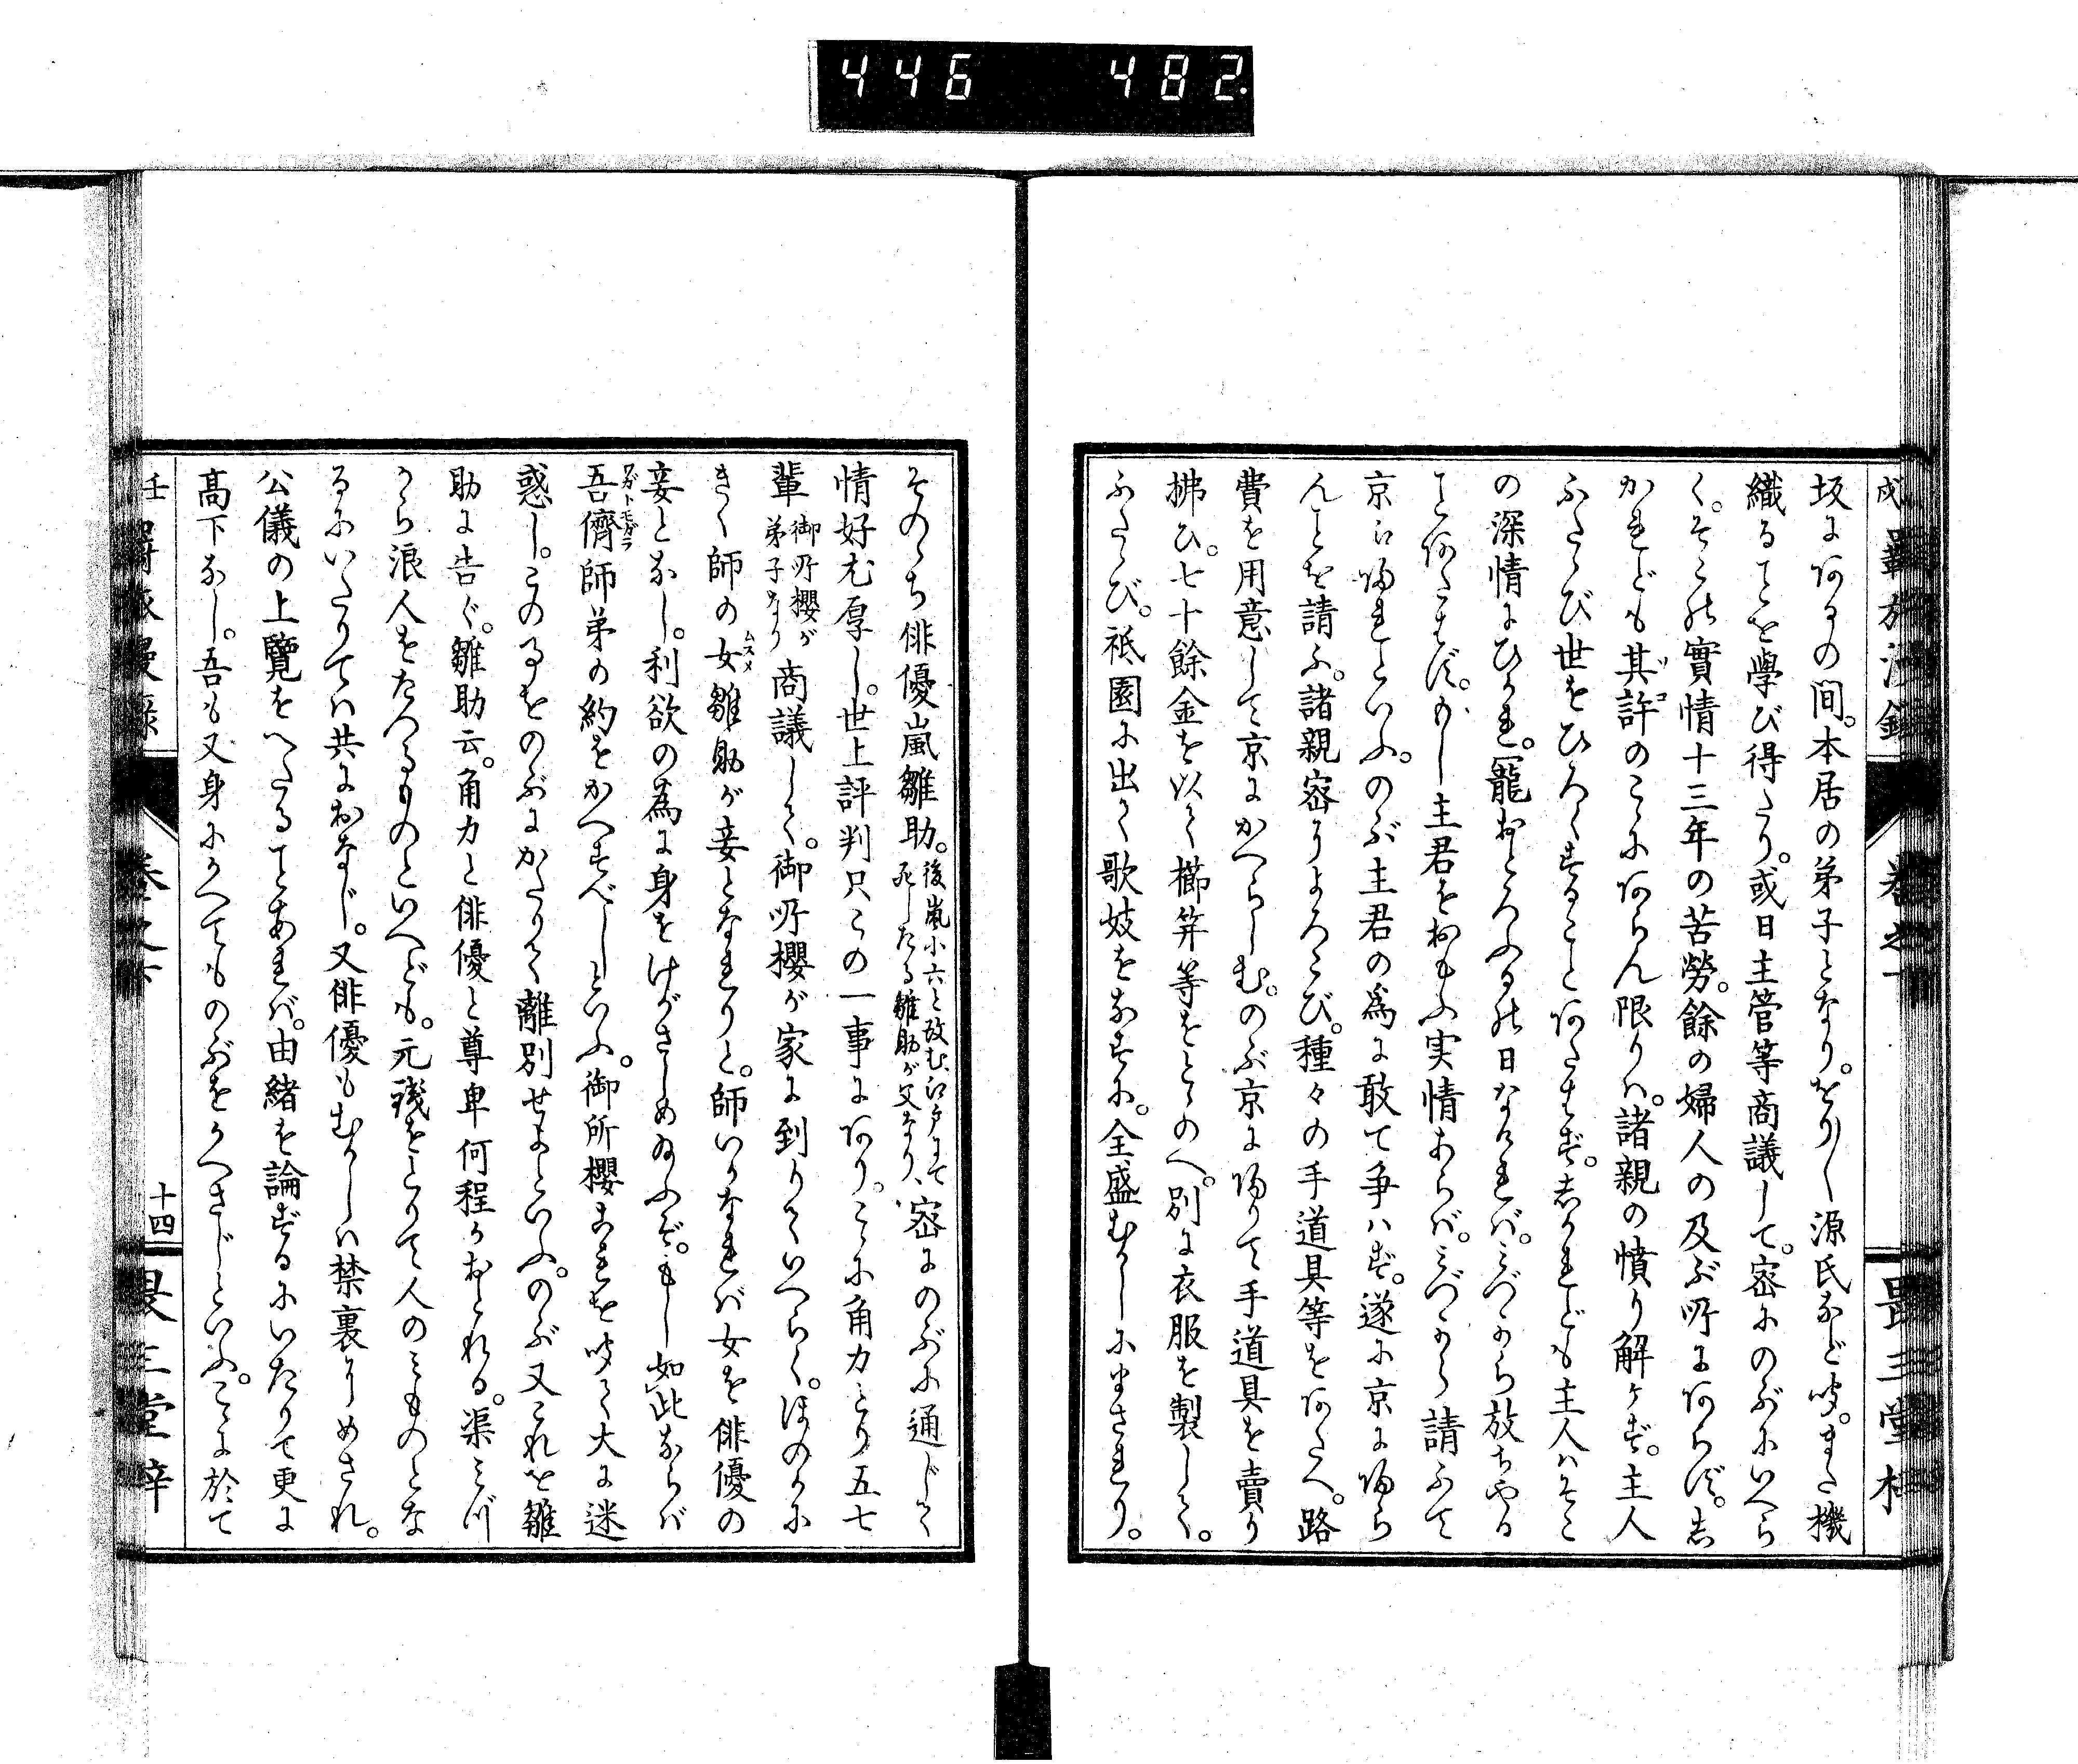 446 482.
坂にあるの間。本居の弟子となり。をり〱源氏など吟。また機
織ることを學び得たり。或日主管等商議して。密にのぶにいへら
く。そこの實情十三年の苦勞。餘の婦人の及ぶ所にあらず。志
かれども其許のこゝにあらん限りは。諸親の憤り解ケず。主人
ふたゝび世をひろくすることあたはず。志かれども主人はそこ
の深情にひかれ。寵おとろふるの日なければ。みづから放ちやる
ことあたはず。もし主君をおもふ実情あらば。みづから請ふて
京に帰れといふ。のぶ主君の為に敢て争はず。遂に京に帰ら
んことを請ふ。諸親密によろこび。種々の手道具等をあたへ。路
費を用意して京にかへらしむ。のぶ京に帰りて手道具を賣り
拂ひ。七十餘金を以て櫛笄等をとゝのへ。別に衣服を製して。
ふたゝび。祇園に出て歌妓をなすに。全盛むかしにまされり。
卷之下
そのゝち俳優嵐雛助。後嵐小六と改む、江戸にて
死したる雛助が父なり、密にのぶに通じて
情好尤厚し。世上評判只この一事にあり。こゝに角力とり五七
輩御所櫻が
弟子なり商議して。御所櫻が家に到りていへらく。ほのかに
きく師の女雛助が妾となれりと。師いかなれば女を俳優の
ムスメ
妾となし。利欲の為に身をけがさしめ給ふぞ。もし如此ならば
吾儕師弟の約をかへすべしといふ。御所櫻これを吟て大に迷
ワガトモガラ
惑し。この事をのぶにかたりて離別せよといふ。のぶ又これを雛
助に告ぐ。雛助云。角力と俳優と尊卑何程かおとれる。渠みづ
から浪人をたつるものといへども。元錢をとりて人のみものとな
るにいたりては共におなじ。又俳優もむかしは禁裏にめされ。
公儀の上覽をへたることあれば。由緒を論ずるにいたりて更に
高下なし。吾も又身にかへてものぶをかへさじといふ。こゝに於て
卷之下
十四